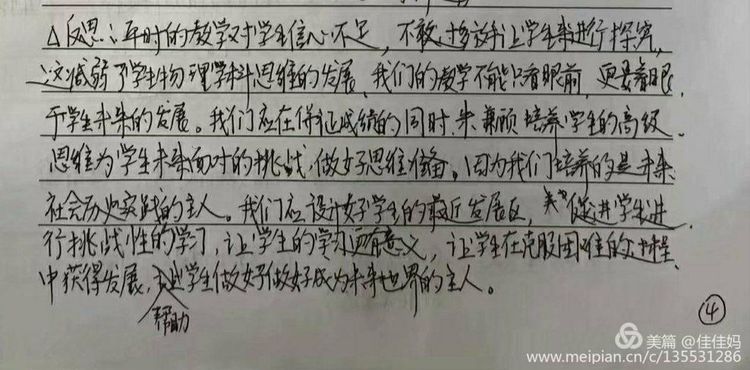 △反思：平时的教学对学生信心不足，不敢放手让学生来进行探究，
这减弱了学生物理学科思维的发展，我们的教学不能只看眼前，更要着眼
于学生未来的发展。我们应在保证成绩的同时，来兼顾培养学生的高级
思维为学生未来面对的挑战，做好思维准备。因为我们培养的是未来
社会历史实践的主人。我们应设计好学生的最近发展区，来促进学生进
行挑战性的学习，让学生的学习更有意义，让学生在克服困难的过程
中获得发展，学生做好做好成为未来世界的主人。
帮助
④
美篇 @佳佳妈
www.meipian.cn/c/135531286